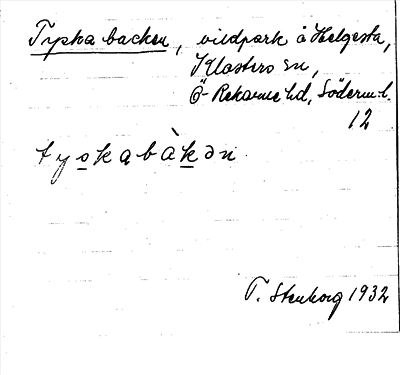 Tyska backen, vildpark å Helgesta,
Klosters sn,
Ö-Rekarne hd, Söderm. l.
12
tyskabàkən
T. Stenborg 1932